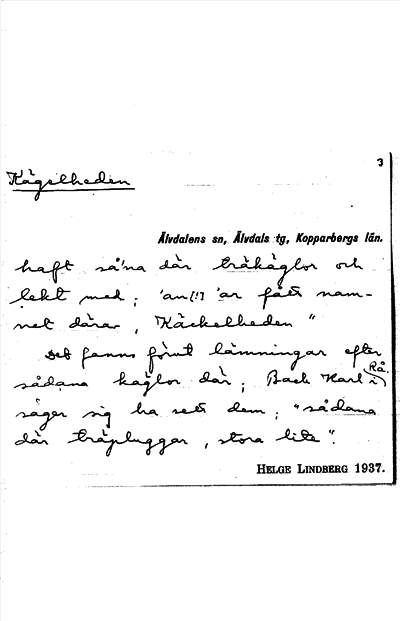 3
Kägelheden
Älvdalens sn, Älvdals tg, Kopparbergs län.
haft så'na där träkäglor och
lekt med; 'an[!] 'ar fått nam-
net därav, "Käckelheden"
Det fanns förut lämningar efter
sådana käglor där; Back Karl i Rå.
säger sig ha sett dem; "sådana
där träpluggar, stora lite".
HELGE LINDBERG 1937.